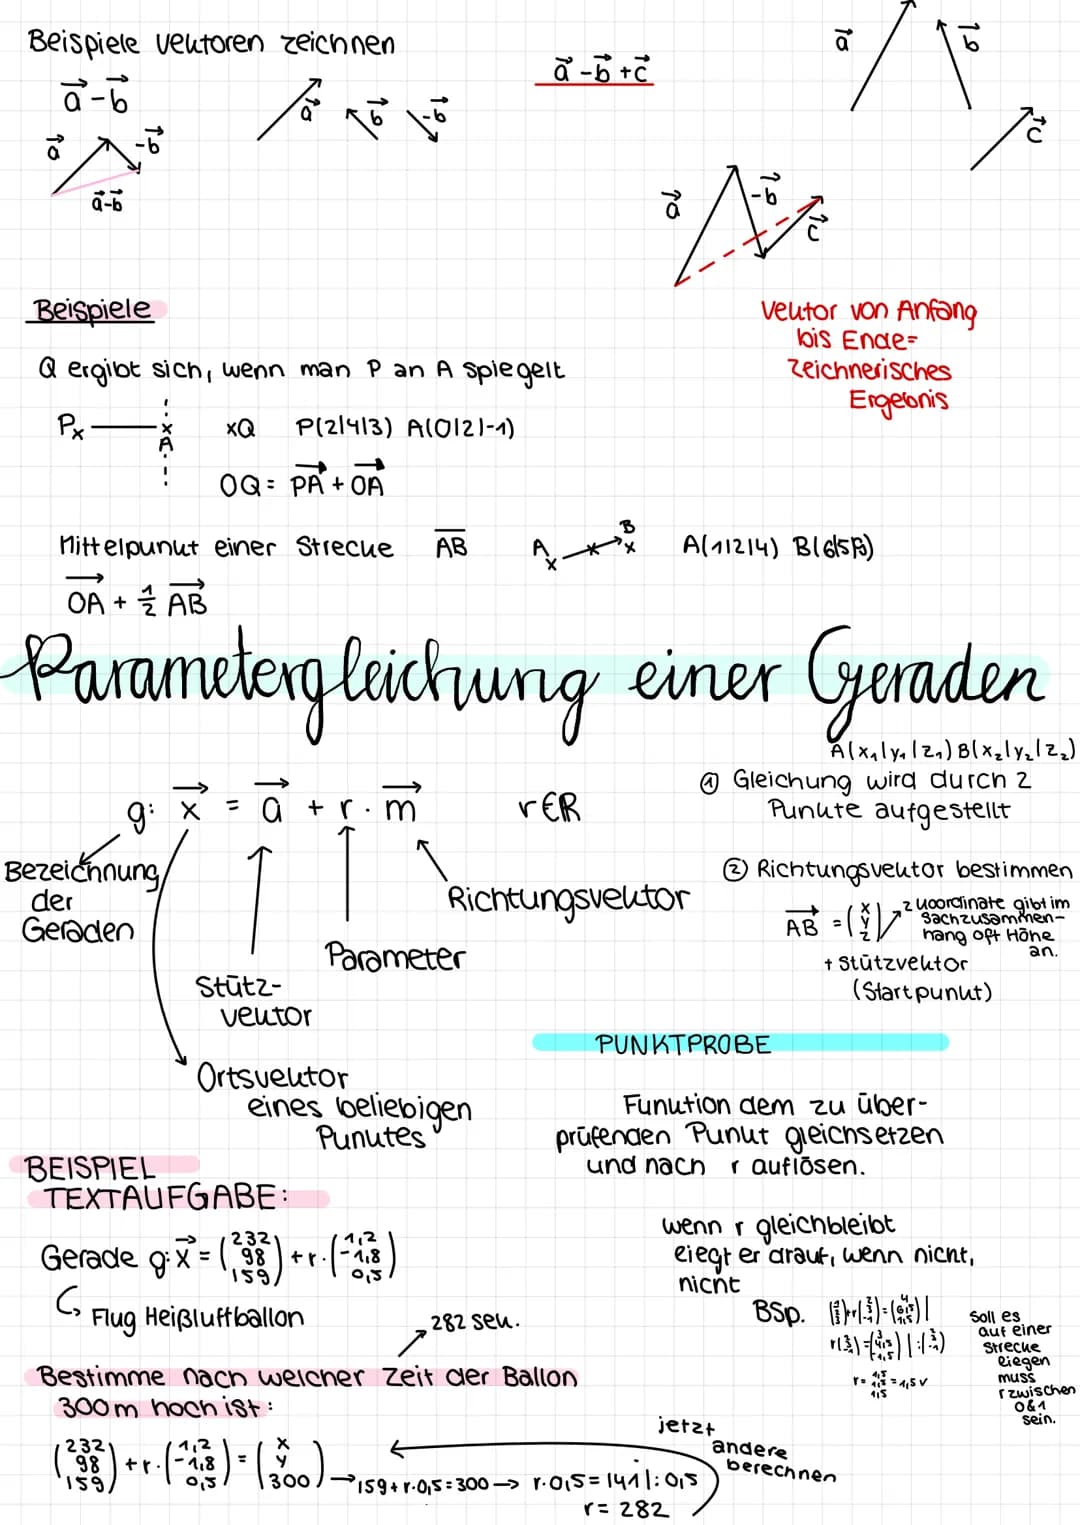 Beispiele Vektoren zeichnen
a⃗ - b⃗
a⃗
-b⃗
a⃗-b⃗
a⃗
b⃗
-b⃗
a⃗ - b⃗ + c⃗
a⃗
b⃗
c⃗
a⃗
-b⃗
c⃗
Vektor von Anfang
bis Ende=
zeichnerisches
Ergebnis
Beispiele
Q ergibt sich, wenn man P an A spiegelt
Px x A xQ P(2|4|3) A(0|2|-1)
OQ = PA⃗ + OA⃗
Mittelpunkt einer Strecke AB A x x B x A(1|2|4) B(6|5|8)
OA⃗ + 1/2 AB⃗
Parametergleichung einer Geraden
A(x₁|y₁|z₁) B(x₂|y₂|z₂)
g: x⃗ = a⃗ + r · m⃗ r∈R
Bezeichnung
der
Geraden
Stütz-
vektor
Parameter
Richtungsvektor
Ortsvektor
eines beliebigen
Punktes
① Gleichung wird durch 2
Punkte aufgestellt
② Richtungsvektor bestimmen
AB⃗ = (x y z)
z Koordinate gibt im
Sachzusammen-
hang oft Höhe
an.
+ Stützvektor
(Startpunkt)
PUNKTPROBE
Funktion dem zu über-
prüfenden Punkt gleichsetzen
und nach r auflösen.
wenn r gleichbleibt
liegt er drauf, wenn nicht,
nicht
BSP.
r = 1,5 ✓
Soll es
auf einer
Strecke
liegen
muss
r zwischen
0&1
sein.
BEISPIEL
TEXTAUFGABE:
Gerade g: x⃗ = (232 98 159) + r · (1,2 -1,8 0,5)
Flug Heißluftballon
282 sek.
Bestimme nach welcher Zeit der Ballon
300m hoch ist:
(232 98 159) + r · (1,2 -1,8 0,5) = (x y 300) → 159 + r·0,5 = 300 → r·0,5 = 141 |: 0,5
r = 282
jetzt
andere
berechnen